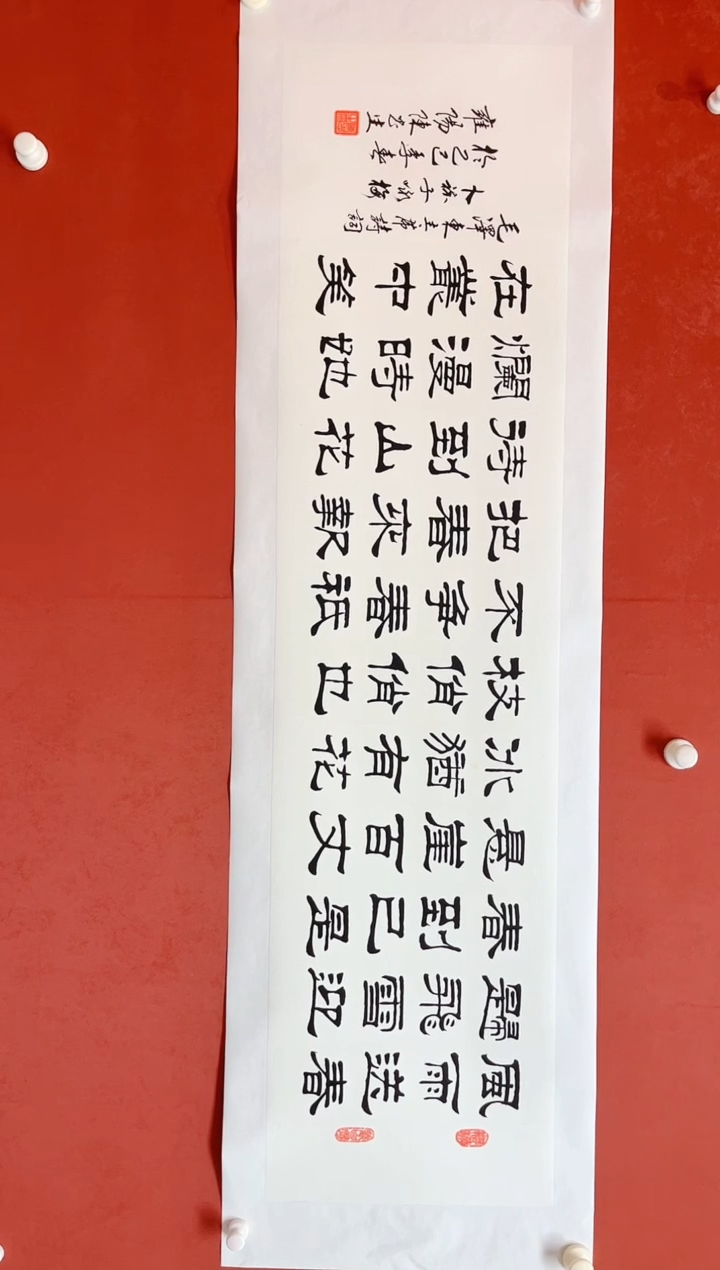 風雨送春
歸飛雪迎
春到已是
悬崖百丈
冰猶有花
枝俏俏也
不争春祇
把春來報
待到山花
爛漫時她
在叢中笑
毛澤東主席詩詞
卜算子咏梅
於乙巳年春
雍陽陳生